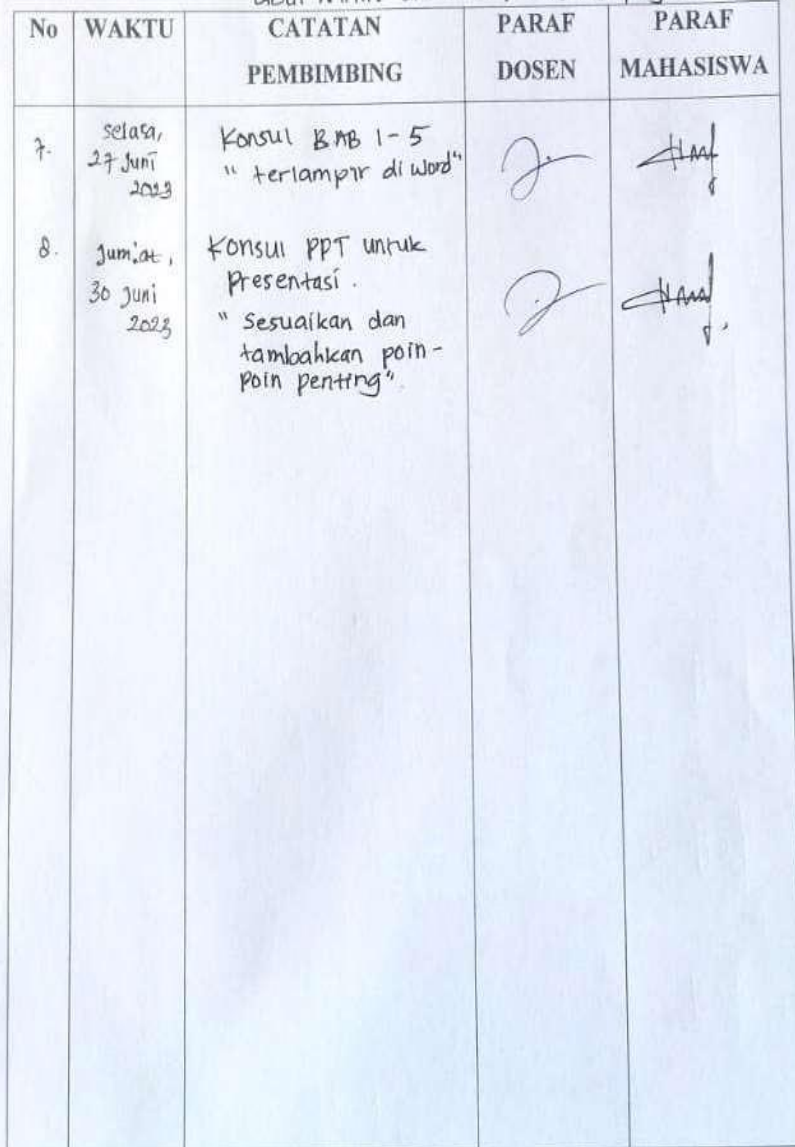 No WAKTU CATATAN PEMBIMBING PARAF DOSEN PARAF MAHASISWA
7. Selasa, 27 Juni 2023
Konsul BAB 1-5
" terlampir di Word"
8. Jum'at, 30 Juni 2023
Konsul PPT untuk
Presentasi.
" Sesuaikan dan
tambahkan poin-
poin penting".